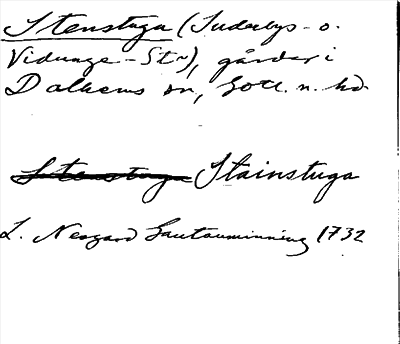 Stenstuga (Suderbys- o.
Vidunge-St~), gårdar i
Dalhems sn, Gotl. n. hd.
Stenstuga Stainstuga
L. Nesgard Gautauminning 1732